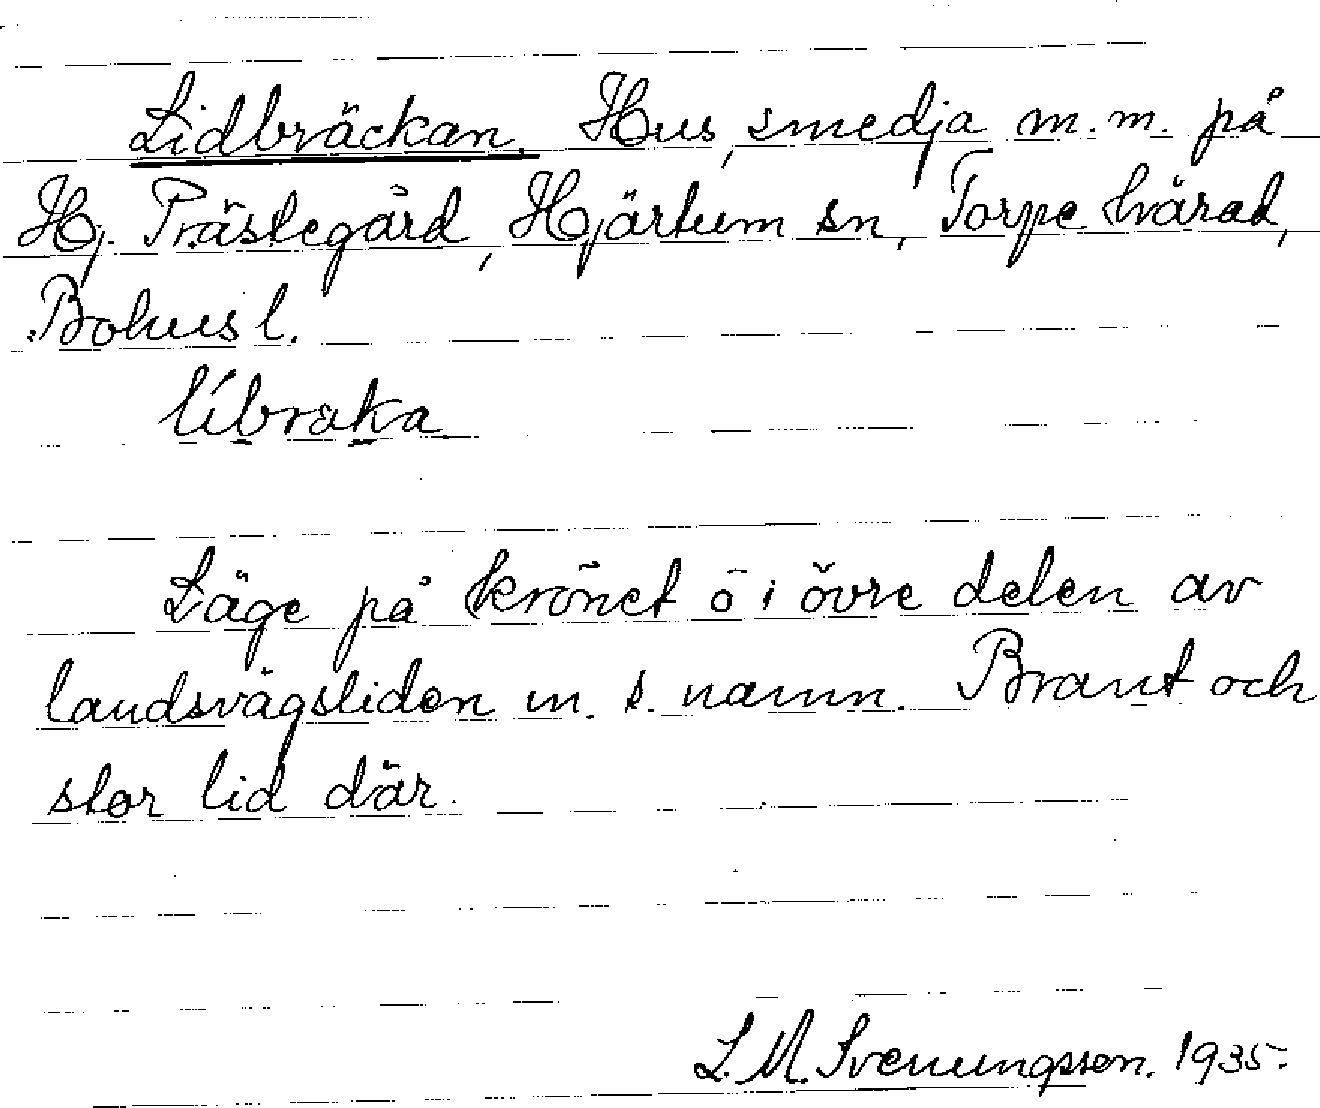 Lidbräckan. Hus, smedja m.m. på
Hj. Prästegård, Hjärtum sn, Torpe härad,
Bohusl.
líbraka
Läge på krönet ö i övre delen av
landsvägsliden m. s. namn. Brant och
stor lid där.
L. M. Svenungsson. 1935.